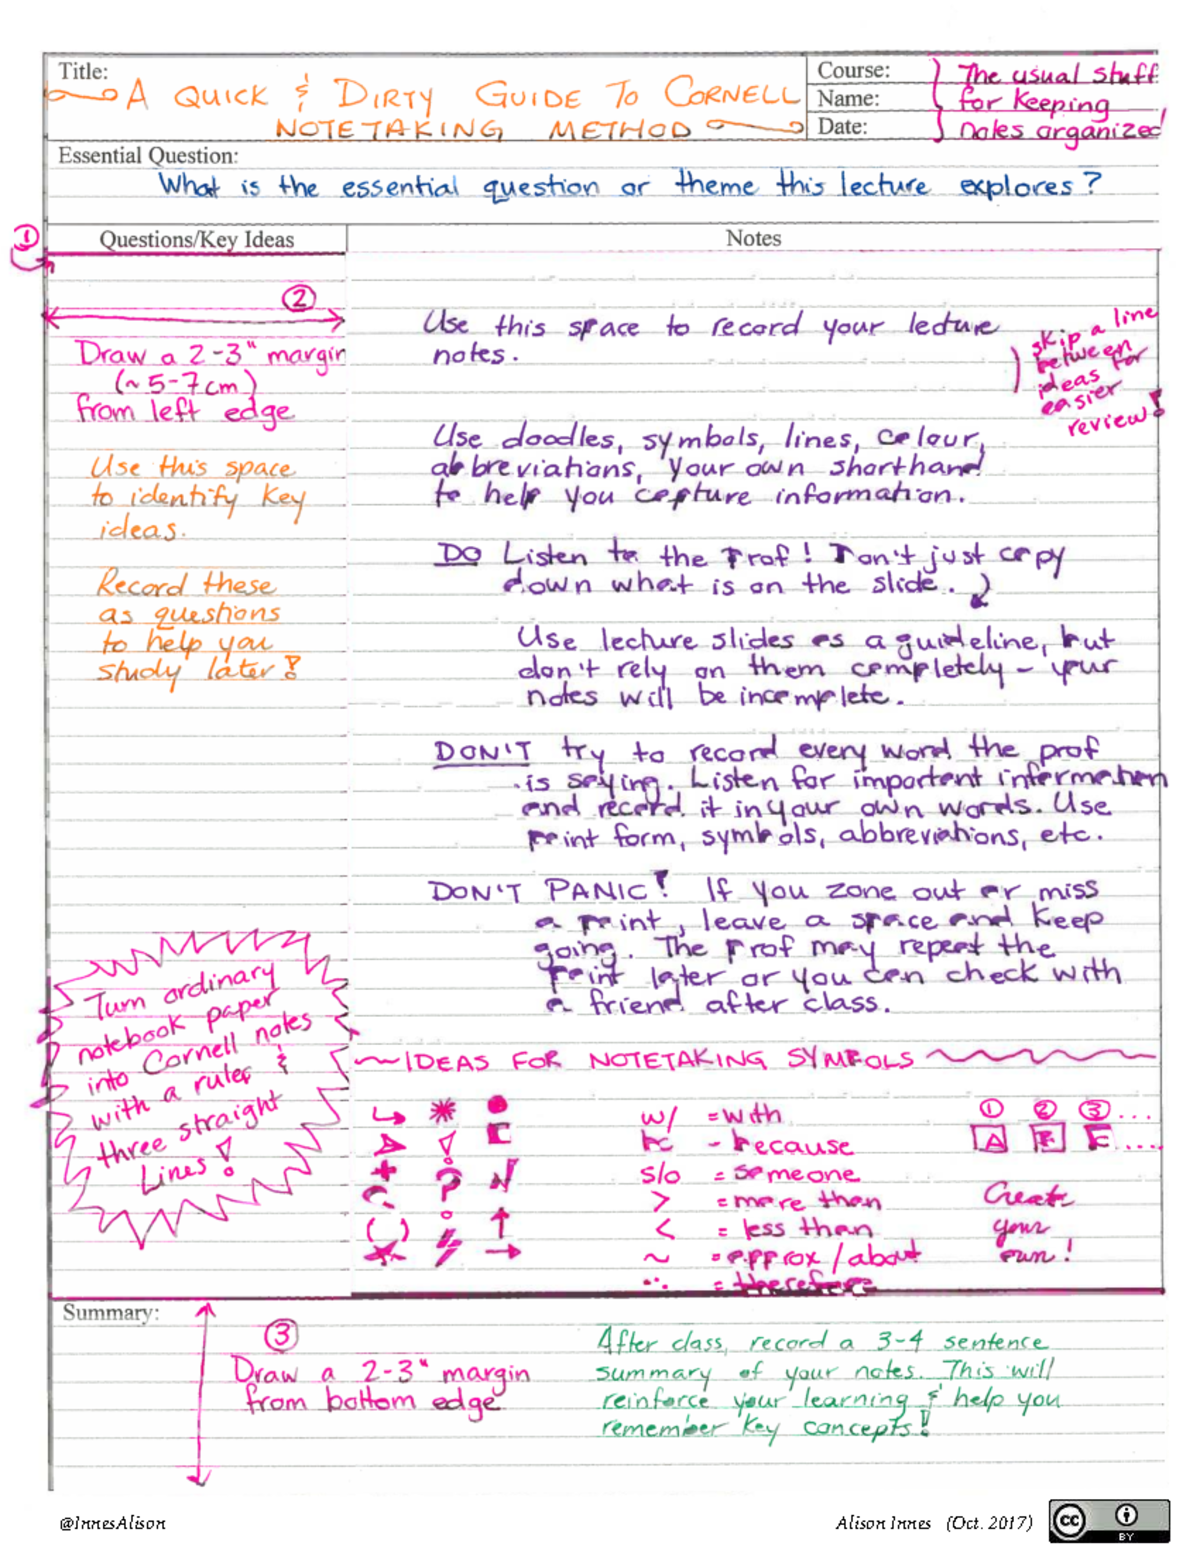 Title:
A QUICK & DIRTY GUIDE TO CORNELL
NOTETAKING METHOD
Course:
Name:
Date:
The usual stuff
for keeping
notes organized
Essential Question:
What is the essential question or theme this lecture explores?
①
Questions/Key Ideas
Notes
②
Draw a 2-3" margin
(~5-7cm)
from left edge
Use this space
to identify key
ideas.
Record these
as questions
to help you
study later!
Turn ordinary
notebook paper
into Cornell notes
with a ruler &
three straight
Lines!
Use this space to record your lecture
notes.
skip a line
between
ideas for
easier
review!
Use doodles, symbols, lines, colour,
abbreviations, your own shorthand
to help you capture information.
DO Listen to the Prof! Don't just copy
down what is on the slide.
Use lecture slides as a guideline, but
don't rely on them completely - your
notes will be incomplete.
DON'T try to record every word the prof
is saying. Listen for important information
and record it in your own words. Use
point form, symbols, abbreviations, etc.
DON'T PANIC! If you zone out or miss
a point, leave a space and keep
going. The Prof may repeat the
point later or you can check with
a friend after class.
IDEAS FOR NOTETAKING SYMBOLS
w/ = with
bc - because
s/o = someone
> = more than
< = less than
~ = approx/about
∴ = therefore
① ② ③ ...
A B C ....
Create
your
own!
Summary:
③
Draw a 2-3" margin
from bottom edge
After class, record a 3-4 sentence
summary of your notes. This will
reinforce your learning & help you
remember key concepts!
@InnesAlison
Alison Innes (Oct. 2017)
cc
BY